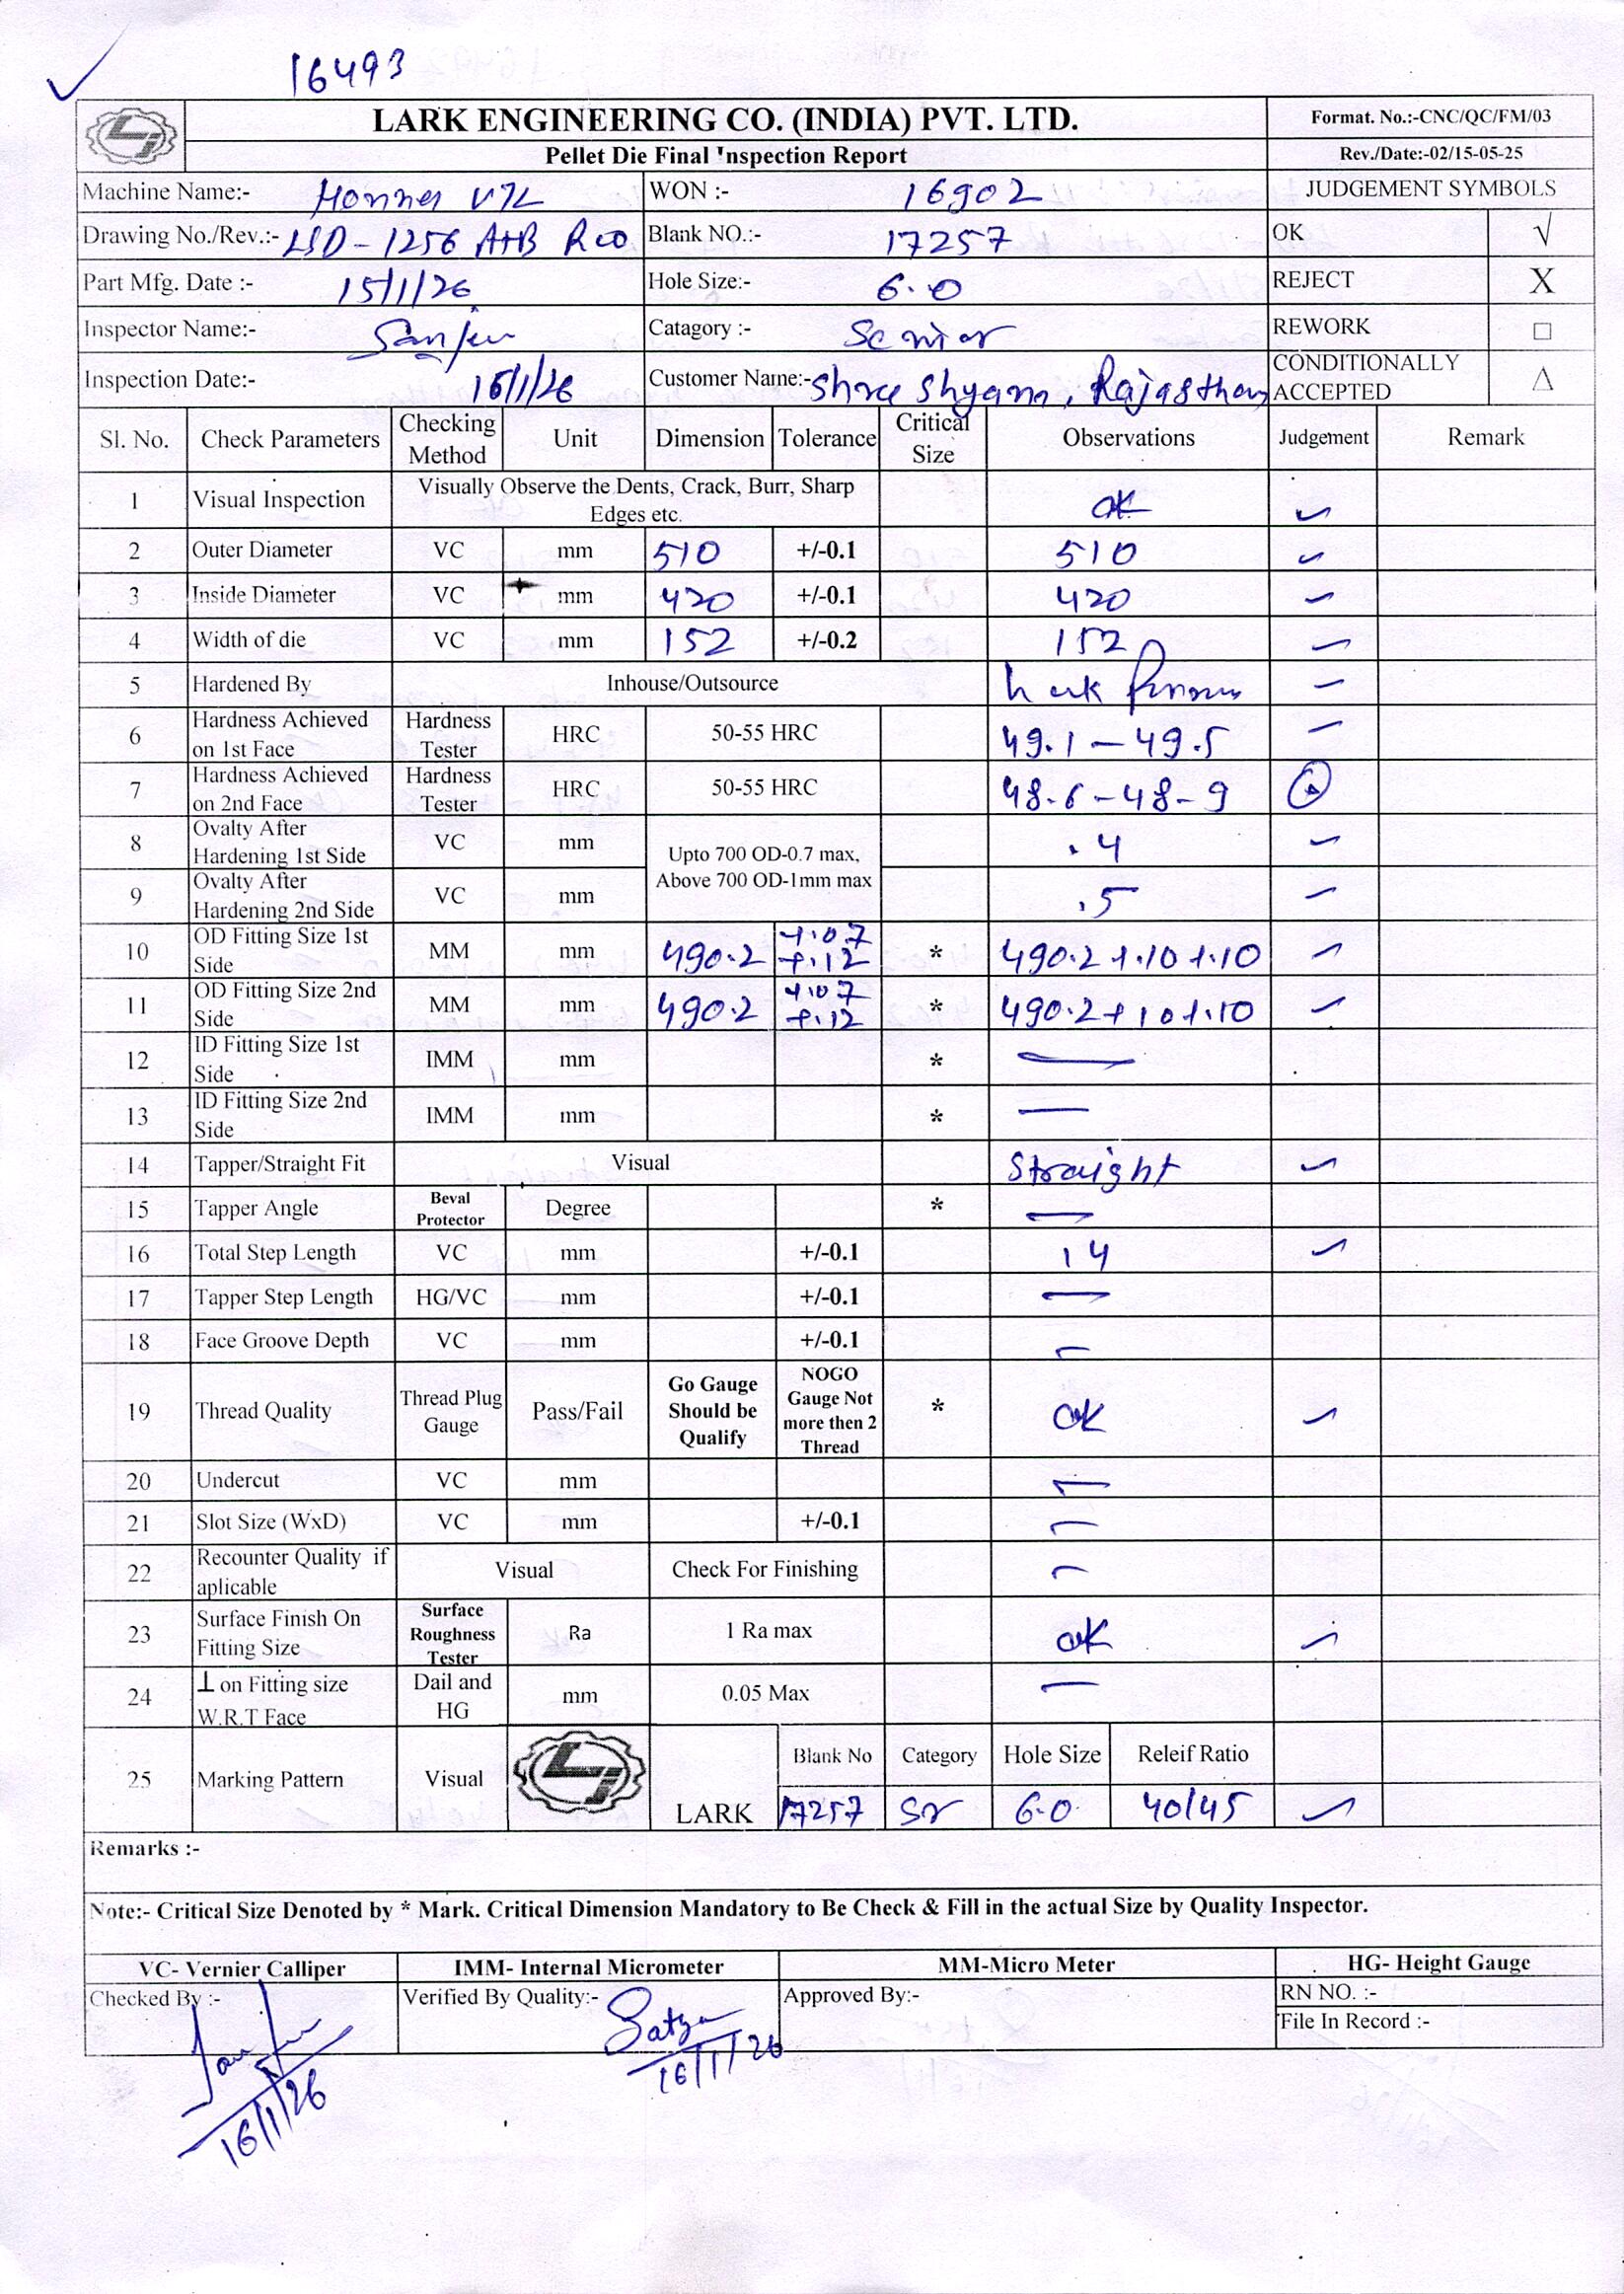 16493
LARK ENGINEERING CO. (INDIA) PVT. LTD.
Format. No.:-CNC/QC/FM/03
Pellet Die Final Inspection Report
Rev./Date:-02/15-05-25
Machine Name:- VTL WON :- 16902 JUDGEMENT SYMBOLS
Drawing No./Rev.:- LSD-1256 A+B R00 Blank NO.:- 17257 OK √
Part Mfg. Date :- 15/1/26 Hole Size:- 6.0 REJECT X
Inspector Name:- Sanjeev Catagory :- Senior REWORK □
Inspection Date:- 16/1/26 Customer Name:- Shree Shyam, Rajasthan CONDITIONALLY ACCEPTED Δ
Sl. No. Check Parameters Checking Method Unit Dimension Tolerance Critical Size Observations Judgement Remark
1 Visual Inspection Visually Observe the Dents, Crack, Burr, Sharp Edges etc. OK ✓
2 Outer Diameter VC mm 510 +/-0.1 510 ✓
3 Inside Diameter VC mm 420 +/-0.1 420 ✓
4 Width of die VC mm 152 +/-0.2 152 ✓
5 Hardened By Inhouse/Outsource ✓
6 Hardness Achieved on 1st Face Hardness Tester HRC 50-55 HRC 49.1 - 49.5 ✓
7 Hardness Achieved on 2nd Face Hardness Tester HRC 50-55 HRC 48.6 - 48-9
8 Ovalty After Hardening 1st Side VC mm Upto 700 OD-0.7 max, Above 700 OD-1mm max .4 ✓
9 Ovalty After Hardening 2nd Side VC mm .5 ✓
10 OD Fitting Size 1st Side MM mm 490.2 +.07 +.12 * 490.2 +.10 +.10 ✓
11 OD Fitting Size 2nd Side MM mm 490.2 +.07 +.12 * 490.2 +10 +.10 ✓
12 ID Fitting Size 1st Side IMM mm * —
13 ID Fitting Size 2nd Side IMM mm * —
14 Tapper/Straight Fit Visual Straight ✓
15 Tapper Angle Beval Protector Degree * —
16 Total Step Length VC mm +/-0.1 14 ✓
17 Tapper Step Length HG/VC mm +/-0.1 —
18 Face Groove Depth VC mm +/-0.1 —
19 Thread Quality Thread Plug Gauge Pass/Fail Go Gauge Should be Qualify NOGO Gauge Not more then 2 Thread * OK ✓
20 Undercut VC mm —
21 Slot Size (WxD) VC mm +/-0.1 —
22 Recounter Quality if aplicable Visual Check For Finishing —
23 Surface Finish On Fitting Size Surface Roughness Tester Ra 1 Ra max OK ✓
24 ⊥ on Fitting size W.R.T Face Dail and HG mm 0.05 Max —
25 Marking Pattern Visual LARK Blank No Category Hole Size Releif Ratio
17257 Sr 6.0 40/45 ✓
Remarks :-
Note:- Critical Size Denoted by * Mark. Critical Dimension Mandatory to Be Check & Fill in the actual Size by Quality Inspector.
VC- Vernier Calliper IMM- Internal Micrometer MM-Micro Meter HG- Height Gauge
Checked By :- Verified By Quality:- Approved By:- RN NO. :-
File In Record :-
16/1/26
16/1/26